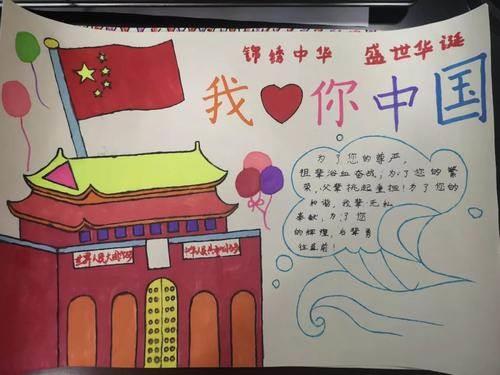 锦绣中华 盛世华诞
我❤你中国
为了您的尊严,
祖辈浴血奋战;为了您的繁
荣,父辈挑起重担!为了您的
和谐,我辈无私
奉献,为了您
的辉煌,后辈勇
往直前!
世界人民大团结
中华人民共和国